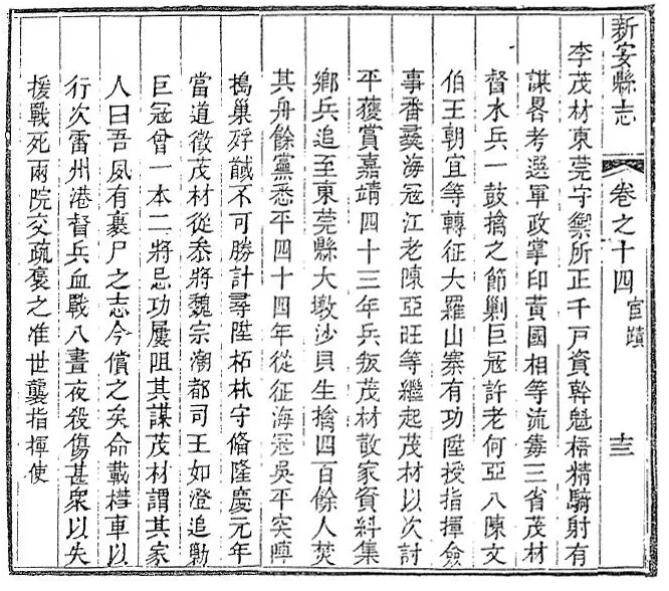 新安縣志 卷之十四 宦蹟 十三
李茂材東莞守禦所正千戶資幹魁梧精騎射有
謀畧考選軍政掌印黃國相等流毒三省茂材
督水兵一鼓擒之節剿巨寇許老何亞八陳文
伯王朝宜等轉征大羅山寨有功陞授指揮僉
事番彝海寇江老陳亞旺等繼起茂材以次討
平獲賞嘉靖四十三年兵叛茂材散家資糾集
鄉兵追至東莞縣大墩沙貝生擒四百餘人焚
其舟餘黨悉平四十四年從征海寇吳平突陣
搗巢殍馘不可勝計尋陞柘林守備隆慶元年
當道徵茂材從叅將魏宗潮都司王如澄追勦
巨寇曾一本二將忌功屢阻其謀茂材謂其家
人曰吾夙有裹尸之志今償之矣命載槥車以
行次雷州港督兵血戰八晝夜殺傷甚眾以失
援戰死兩院交疏褒之准世襲指揮使